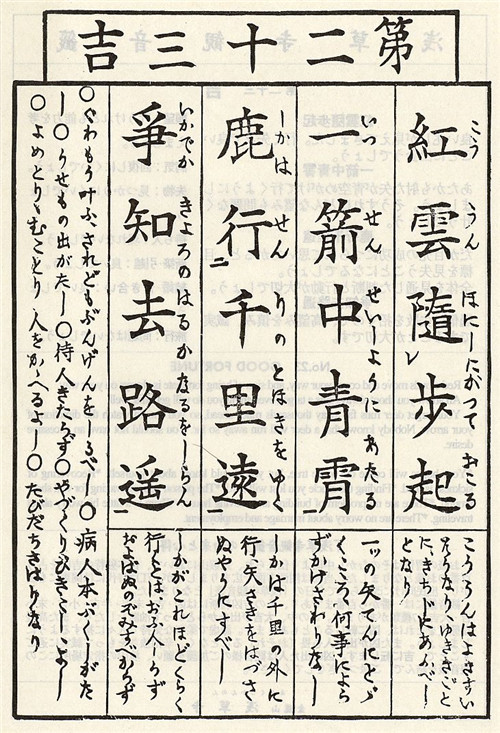 第二十三吉
こううんほにしたがつておこる
紅雲隨歩起
レ
いつせんせいしようあたる
一箭中青霄
しかはせんりのとほきをゆく
鹿行二千里遠一
いかでかきよろのはるかなるをしらん
爭知去路遥
こううんはよきさい
そうなりゆくさきごと
に、きちじにあふべし
となり
一ツの矢てんにとゞ
くこころ何事によら
ずかけざわりなし
しかは千里の外に
行矢さきをはづさ
ぬやうにすべし
行とは
人しらず
およばぬのぞみすべからず
されどもぶんげんをしるべし〇病人本ぶくしがた
し〇うせもの出がたし〇待人きたらず〇やづくりひきこしよし
〇よめとりむことり人をかゝへるよし〇たびだちさはりなし